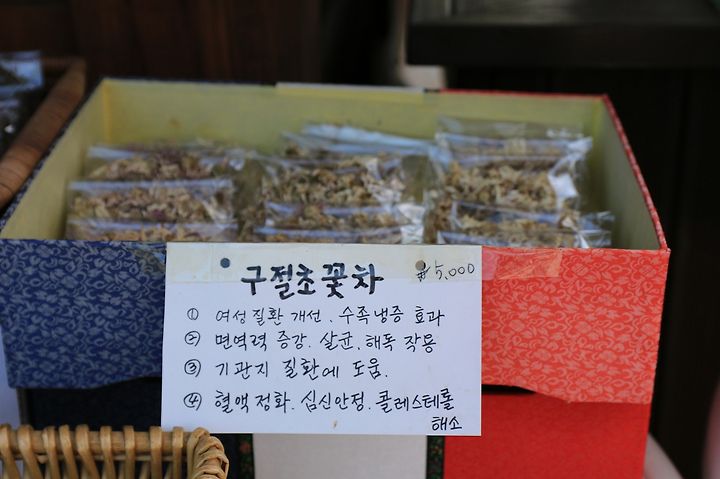 구절초꽃차 ₩5,000
① 여성질환 개선. 수족냉증 효과
② 면역력 증강. 살균. 해독 작용
③ 기관지 질환에 도움.
④ 혈액정화. 심신안정. 콜레스테롤
해소